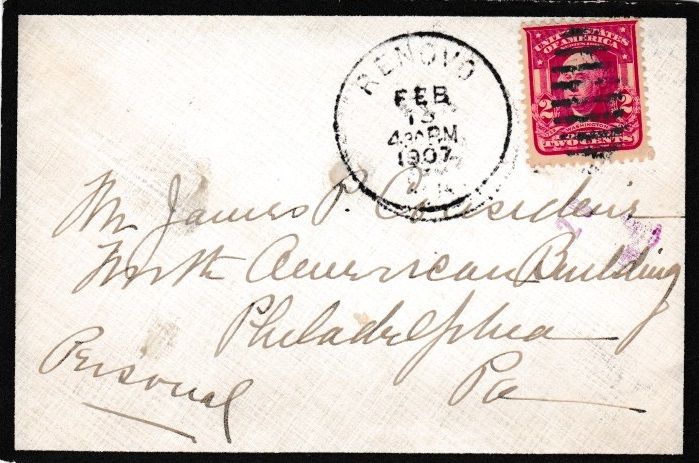 RENOVO
FEB
13
4 30 PM
1907
PA
UNITED STATES
OF AMERICA
WASHINGTON
2 2
TWO CENTS
Mr James P.
North American Building
Philadelphia
Pa
Personal